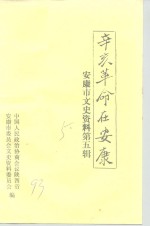 辛亥革命在安康
安康市文史资料第五辑
5
93
中国人民政治协商会议陕西省
安康市委员会文史资料委员会 编